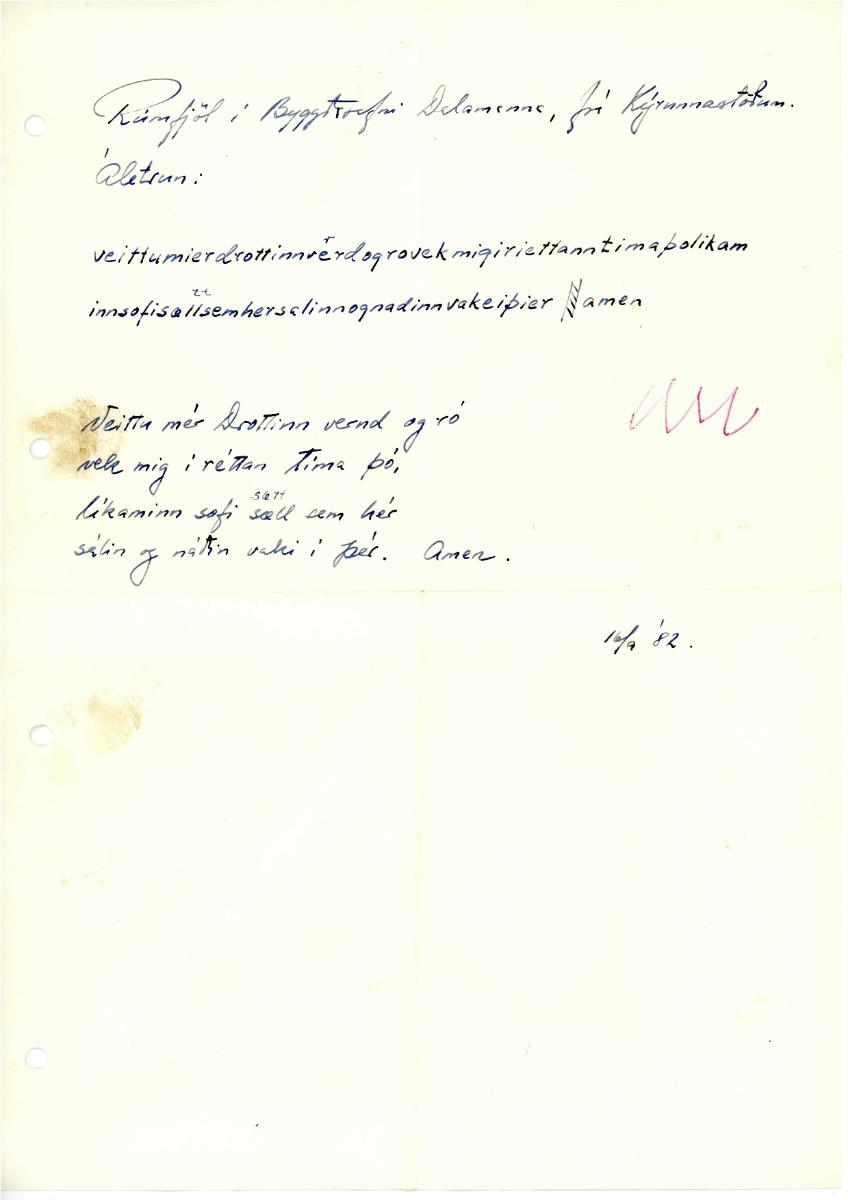 Rúmfjöl í Byggðasafni Dalamanna, frá Kýrunnarstöðum.
Áletrun:
veittumierdrottinnverdogrovekmigiriettanntimaþolikam
tt
innsofisællsemhersalinnognadinnvakeiþier amen
Veittu mér Drottinn vernd og ró
vek mig í réttan tíma þó,
sætt
líkaminn sofi sæll sem hér
sálin og náðin vaki í þér. Amen.
16/9 '82.